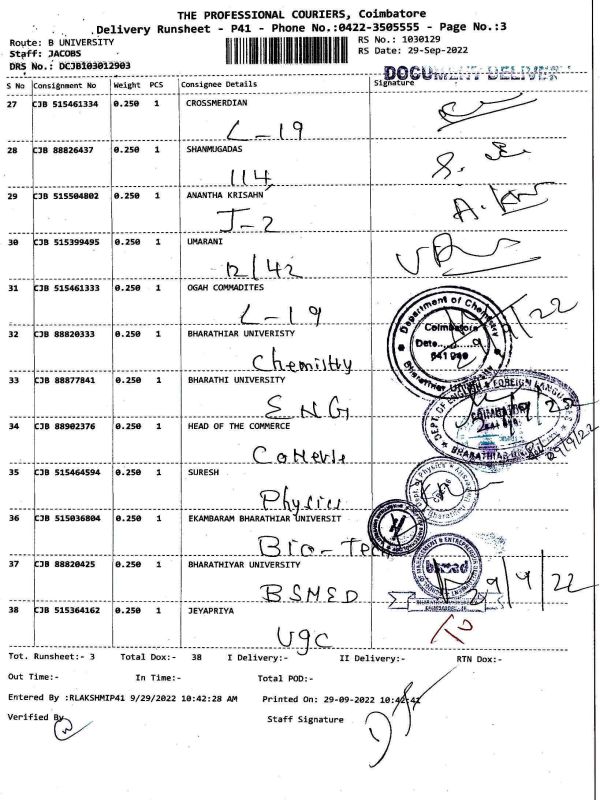 THE PROFESSIONAL COURIERS, Coimbatore
Delivery Runsheet - P41 - Phone No.:0422-3505555 - Page No.:3
Route: B UNIVERSITY RS No.: 1030129
Staff: JACOBS RS Date: 29-Sep-2022
DRS No.: DCJB103012903
DOCUMENT DELIVER
S No Consignment No Weight PCS Consignee Details Signature
27 CJB 515461334 0.250 1 CROSSMERDIAN
L-19
28 CJB 88826437 0.250 1 SHANMUGADAS
114
29 CJB 515504802 0.250 1 ANANTHA KRISAHN
J-2
30 CJB 515399495 0.250 1 UMARANI
12/42
31 CJB 515461333 0.250 1 OGAH COMMADITES
L-19
32 CJB 88820333 0.250 1 BHARATHIAR UNIVERISTY
Chemistry
Department of Chemistry
Coimbatore
Date
641 046
33 CJB 88877841 0.250 1 BHARATHI UNIVERSITY
ENG
DEPT. OF ENGLISH & FOREIGN LANGUAGES
COIMBATORE
29/9/22
34 CJB 88902376 0.250 1 HEAD OF THE COMMERCE
35 CJB 515464594 0.250 1 SURESH
Physics
Dept. of Physics
36 CJB 515036804 0.250 1 EKAMBARAM BHARATHIAR UNIVERSIT
Bio-Tech
37 CJB 88820425 0.250 1 BHARATHIYAR UNIVERSITY
BSMED
bsmed
29/9/22
38 CJB 515364162 0.250 1 JEYAPRIYA
UGC
Tot. Runsheet:- 3 Total Dox:- 38 I Delivery:- II Delivery:- RTN Dox:-
Out Time:- In Time:- Total POD:-
Entered By :RLAKSHMIP41 9/29/2022 10:42:28 AM Printed On: 29-09-2022 10:42:41
Verified By Staff Signature